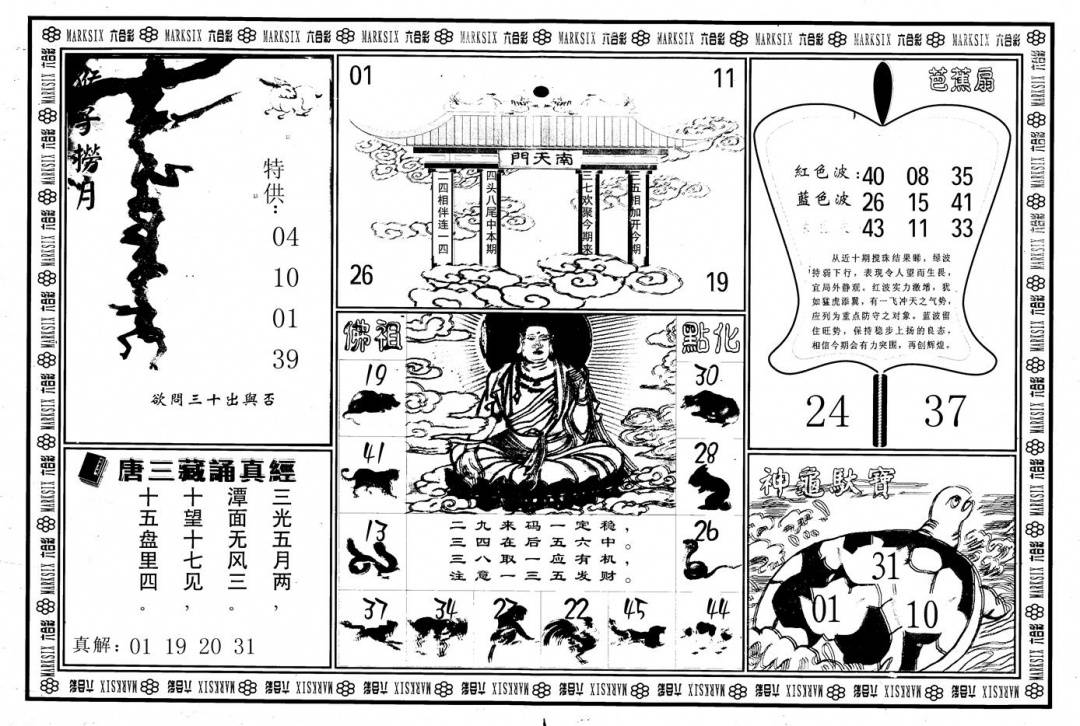 MARKSIX 六合彩 MARKSIX 六合彩 MARKSIX 六合彩 MARKSIX 六合彩 MARKSIX 六合彩 MARKSIX 六合彩 MARKSIX 六合彩 MARKSIX 六合彩 MARKSIX 六合彩 MARKSIX 六合彩
猴子撈月
特供:
04
10
01
39
欲問三十出與否
唐三藏誦真經
三光五月两，
潭面无风三。
十望十七见，
十五盘里四。
真解: 01 19 20 31
01 11
南天門
三五相加开今期
三七欢聚今期来
四头八尾中本期
二四相伴连一四
26 19
佛祖 點化
19 30
41 28
13 26
二九来码一定稳，
三四在后五六中。
三八取一应有机，
注意一三五发财。
37 34 22 45 44
芭蕉扇
紅色波: 40 08 35
蓝色波 26 15 41
43 11 33
从近十期搅珠结果睇，绿波
特弱下行，表现令人望而生畏，
宜局外静观。红波实力激增，犹
如猛虎添翼，有一飞冲天之气势，
应列为重点防守之对象。蓝波留
住旺势，保持稳步上扬的良态，
相信今期会有力突围，再创辉煌。
24 37
神龜馱寶
31
01 10